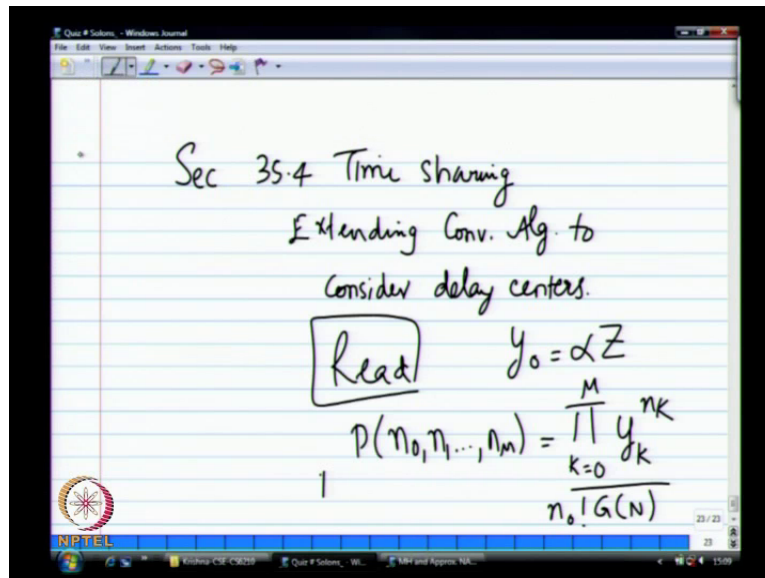 Quiz # Solons_ - Windows Journal
File Edit View Insert Actions Tools Help
Sec 35.4 Time sharing
Extending Conv. Alg. to
Consider delay centers.
Read y₀ = αZ
P(n₀, n₁ ..., n_M) = ∏_{k=0}^{M} y_k^{n_k} / n₀! G(N)
NPTEL
23 / 23
23
Krishna-CSE-CS6210 Quiz # Solons_ - Wi... MH and Approx. NA... 15:09